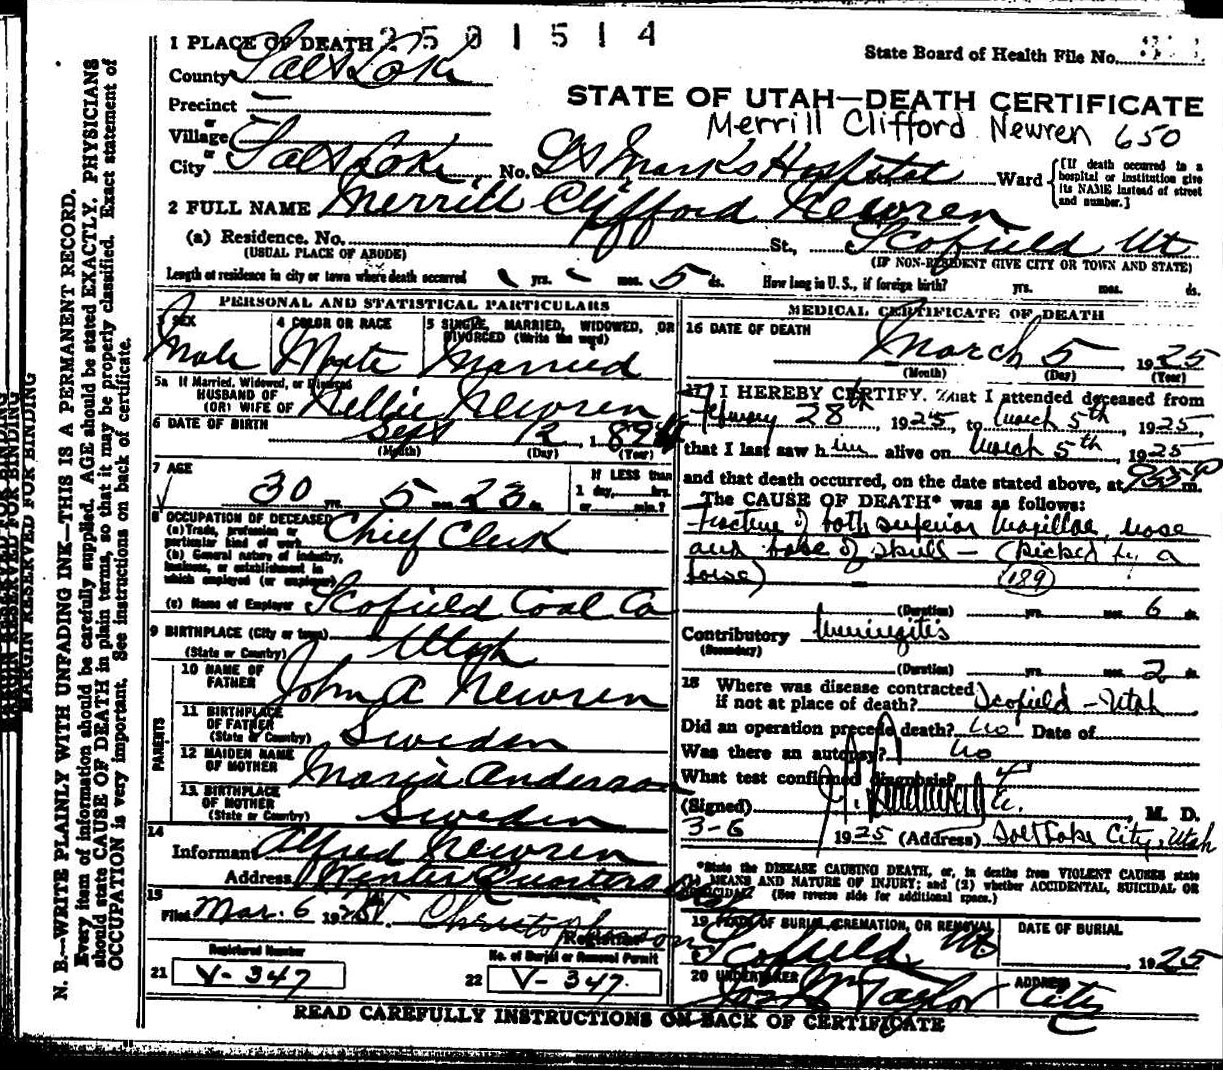 1 PLACE OF DEATH 2501514
State Board of Health File No.
County Salt Lake
STATE OF UTAH—DEATH CERTIFICATE
Precinct
Merrill Clifford Newren 650
or
Village
or
City Salt Lake, No. St Marks Hospital St. Ward
[If death occurred in a hospital or institution give its NAME instead of street and number.]
2 FULL NAME Merrill Clifford Newren
(a) Residence. No. St., Scofield Ut
(USUAL PLACE OF ABODE) (IF NON-RESIDENT GIVE CITY OR TOWN AND STATE)
Length of residence in city or town where death occurred yrs. mos. 5 ds. How long in U.S., if foreign birth? yrs. mos. ds.
PERSONAL AND STATISTICAL PARTICULARS
3 SEX 4 COLOR OR RACE 5 SINGLE, MARRIED, WIDOWED, OR DIVORCED (Write the word)
Male White Married
5a If Married, Widowed, or Divorced
HUSBAND OF
(OR) WIFE OF Nellie Newren
6 DATE OF BIRTH Sept 12 189
(Month) (Day) (Year)
7 AGE If LESS than
30 yrs. 5 mos. 23 ds. 1 day, hrs.
or min.?
8 OCCUPATION OF DECEASED
(a) Trade, profession or particular kind of work Chief Clerk
(b) General nature of industry, business, or establishment in which employed (or employer)
(c) Name of Employer Scofield Coal Co
9 BIRTHPLACE (City or town)
(State or Country) Utah
PARENTS
10 NAME OF FATHER John A Newren
11 BIRTHPLACE OF FATHER (State or Country) Sweden
12 MAIDEN NAME OF MOTHER Maria Anderson
13 BIRTHPLACE OF MOTHER (State or Country) Sweden
14
Informant Alfred Newren
Address Winter Quarters
15
Filed Mar. 6 1925
Registrar
Registered Number No. of Burial or Removal Permit
21 V-347 22 V-347
MEDICAL CERTIFICATE OF DEATH
16 DATE OF DEATH
March 5 1925
(Month) (Day) (Year)
17 I HEREBY CERTIFY, That I attended deceased from
February 28th, 1925, to March 5th, 1925,
that I last saw him alive on March 5th, 1925
and that death occurred, on the date stated above, at m.
The CAUSE OF DEATH* was as follows:
Fracture of both superior Maxillae, nose
and base of skull — (kicked by a
horse) (189)
(Duration) yrs. mos. 6 ds.
Contributory Meningitis
(Secondary)
(Duration) yrs. mos. 2 ds.
18 Where was disease contracted
if not at place of death? Scofield - Utah
Did an operation precede death? no Date of
Was there an autopsy? no
What test confirmed diagnosis?
(Signed) , M. D.
3-6 1925 (Address) Salt Lake City, Utah
*State the DISEASE CAUSING DEATH, or, in deaths from VIOLENT CAUSES state
(1) MEANS AND NATURE OF INJURY; and (2) whether ACCIDENTAL, SUICIDAL OR
HOMICIDAL. (See reverse side for additional space.)
19 PLACE OF BURIAL, CREMATION, OR REMOVAL DATE OF BURIAL
Scofield, Ut , 1925
20 UNDERTAKER ADDRESS
Taylor City
READ CAREFULLY INSTRUCTIONS ON BACK OF CERTIFICATE
MARGIN RESERVED FOR BINDING
N. B.—WRITE PLAINLY WITH UNFADING INK—THIS IS A PERMANENT RECORD.
Every item of information should be carefully supplied. AGE should be stated EXACTLY. PHYSICIANS
should state CAUSE OF DEATH in plain terms, so that it may be properly classified. Exact statement of
OCCUPATION is very important. See instructions on back of certificate.